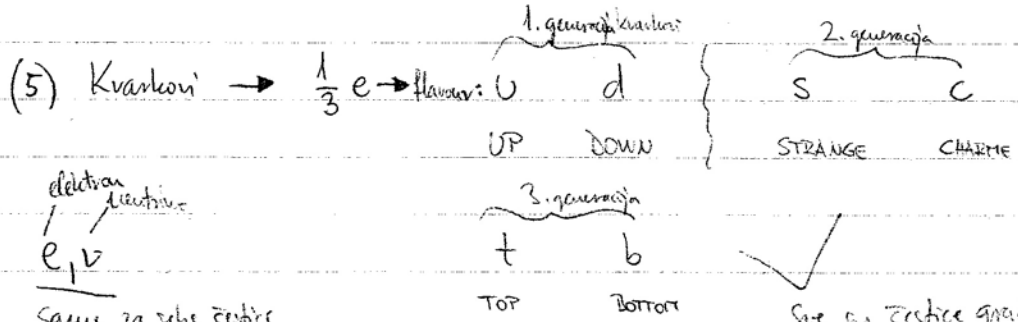 1. generacija kvarkovi
2. generacija
(5) Kvarkovi → 1/3 e → flavour: U d s c
UP DOWN STRANGE CHARME
elektron
neutrino
3. generacija
e, ν
t b
TOP BOTTOM
same za sebe čestice
Sve su čestice